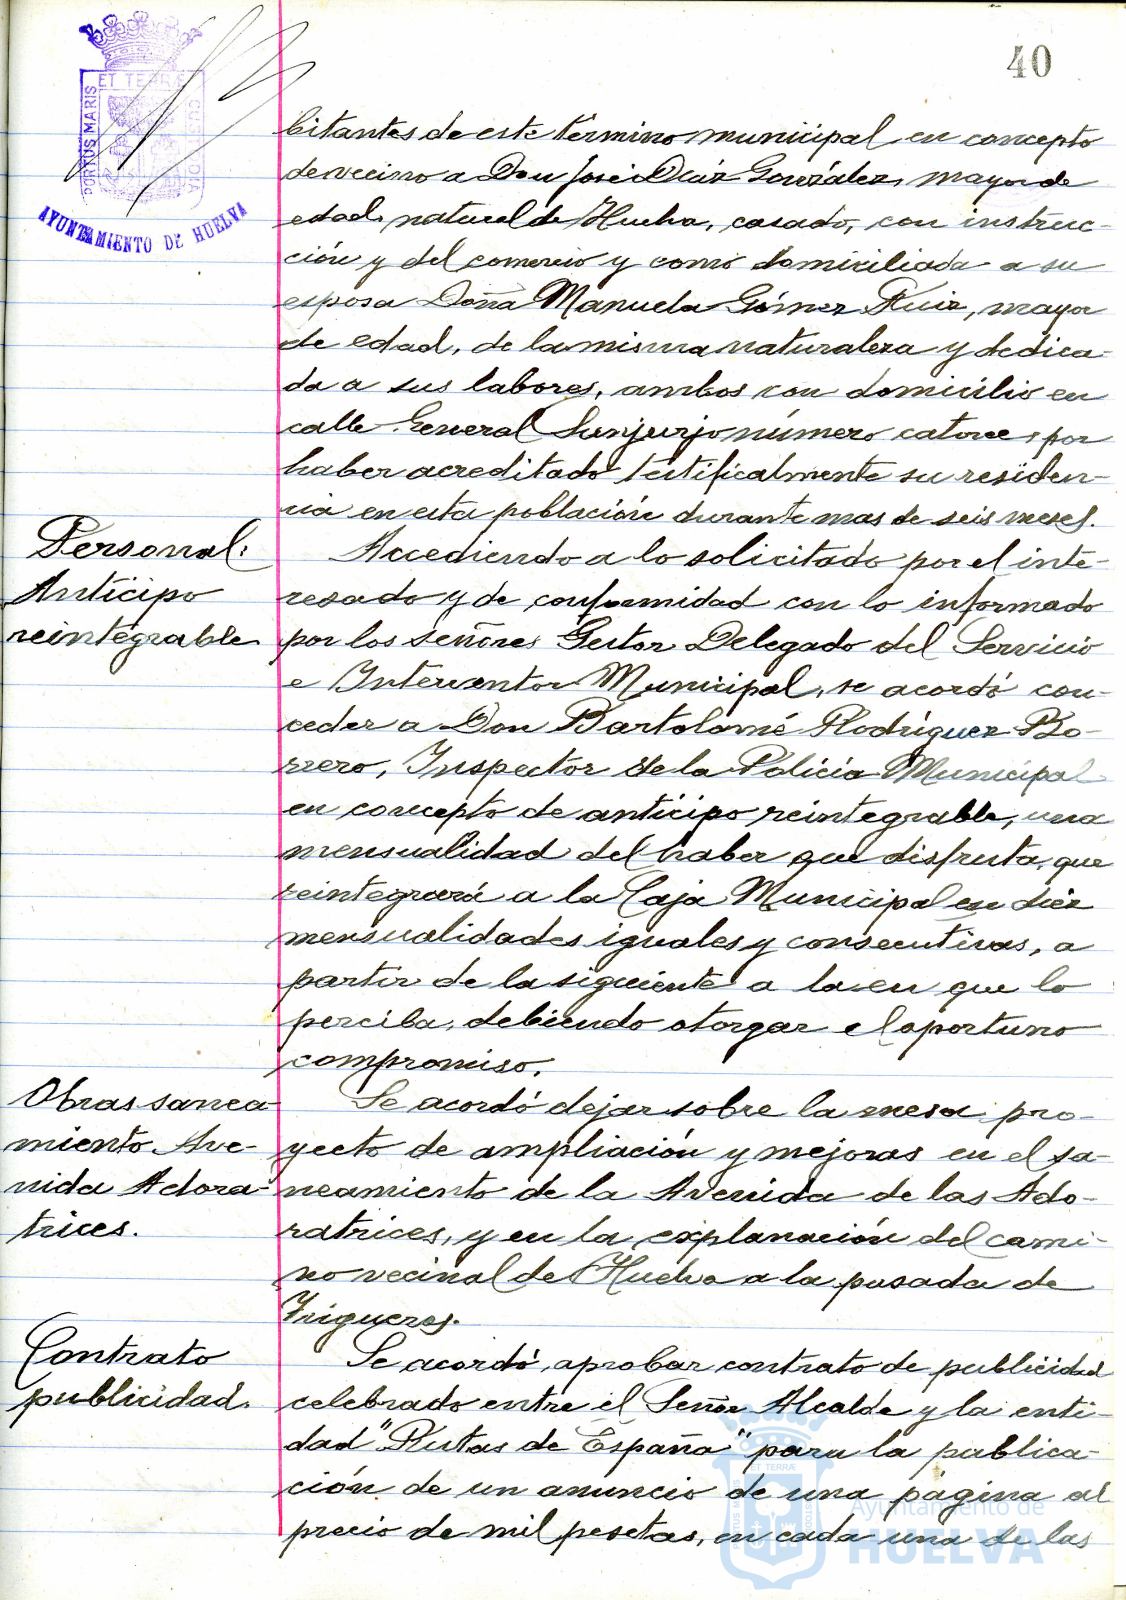 40
PORTUS MARIS
ET TERRÆ
CUSTODIA
AYUNTAMIENTO DE HUELVA
bitantes de este término municipal en concepto
de vecino a Don José Diáz González, mayor de
edad, natural de Huelva, casado, con instruc-
ción y del comercio y como domiciliada a su
esposa Doña Manuela Gómez Ruiz, mayor
de edad, de la misma naturaleza y dedica-
da a sus labores, ambos con domicilio en
calle General Sanjurjo número catorce, por
haber acreditado testificalmente su residen-
cia en esta población durante mas de seis meses.
Personal:
Anticipo
reintegrable
Accediendo a lo solicitado por el inte-
resado y de conformidad con lo informado
por los señores Gestor Delegado del Servicio
e Interventor Municipal, se acordó con-
ceder a Don Bartolomé Rodríguez Bo-
rrero, Inspector de la Policía Municipal
en concepto de anticipo reintegrable, una
mensualidad del haber que disfruta, que
reintegrará a la Caja Municipal en diez
mensualidades iguales y consecutivas, a
partir de la siguiente a la en que lo
perciba, debiendo otorgar el oportuno
compromiso.
Obras sanea
miento Ave-
nida Adora-
trices.
Se acordó dejar sobre la mesa pro-
yecto de ampliación y mejoras en el sa-
neamiento de la Avenida de las Ado-
ratrices, y en la explanación del cami-
no vecinal de Huelva a la pasada de
Trigueros.
Contrato
publicidad.
Se acordó, aprobar contrato de publicidad
celebrado entre el Señor Alcalde y la enti-
dad "Rutas de España" para la publica-
ción de un anuncio de una página al
precio de mil pesetas, en cada una de las
Ayuntamiento de
HUELVA